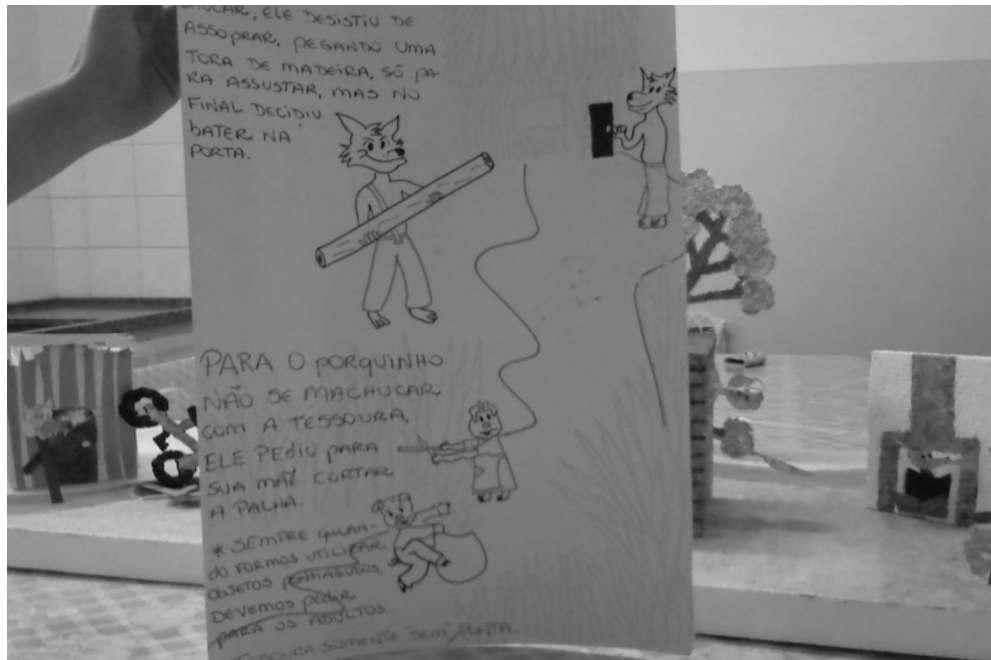 CHUCAR, ELE DESISTIU DE
ASSOPRAR, PEGANDO UMA
TORA DE MADEIRA, SÓ PA-
RA ASSUSTAR, MAS NO
FINAL DECIDIU
BATER NA
PORTA.
PARA O PORQUINHO
NÃO SE MACHUCAR
COM A TESSOURA,
ELE PEDIU PARA
SUA MÃE CORTAR
A PALHA.
* SEMPRE QUAN-
DO FORMOS UTILIZAR
OBJETOS PONTIAGUDOS,
DEVEMOS PEDIR
PARA OS ADULTOS.
TESOURA SOMENTE "SEM" PONTA.